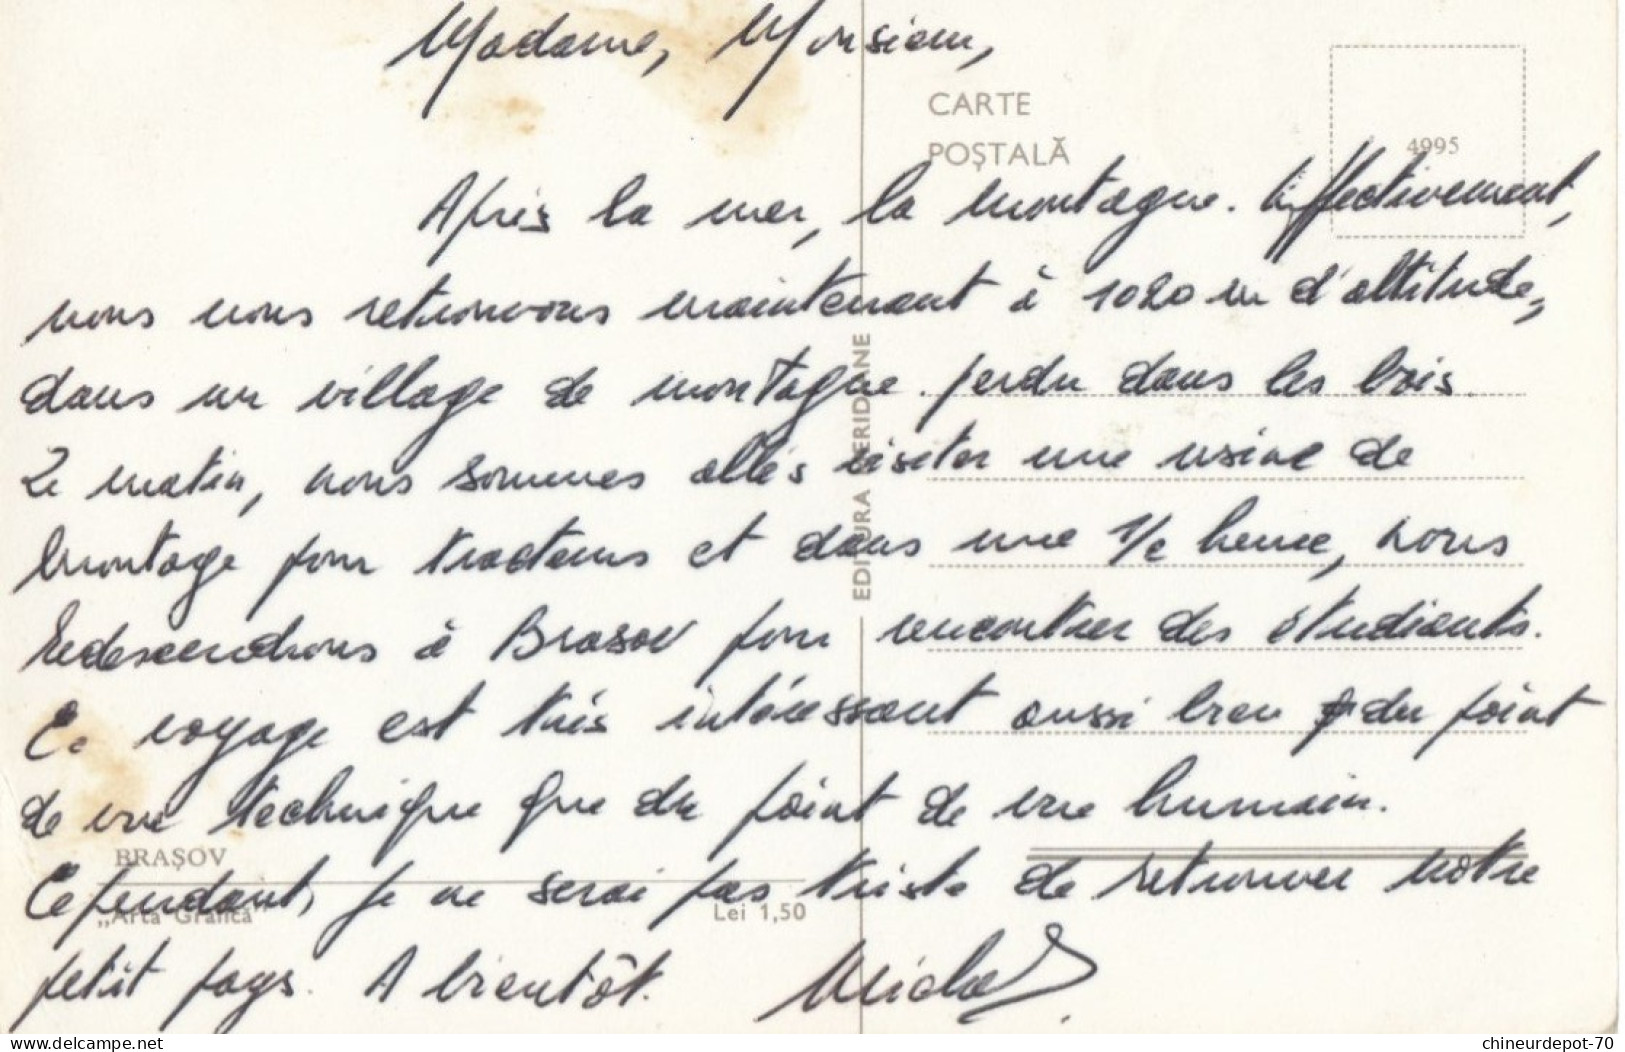 Madame, Monsieur,
CARTE
POȘTALĂ
4995
Après la mer, la montagne. Effectivement,
nous nous retrouvons maintenant à 1020 m d'altitude,
dans un village de montagne perdu dans les bois.
Ce matin, nous sommes allés visiter une usine de
montage pour tracteurs et dans une 1/2 heure, nous
redescendrons à Brasov pour rencontrer des étudiants.
Ce voyage est très intéressant aussi bien du point
de vue technique que du point de vue humain.
Cependant, je ne serai pas triste de retrouver nôtre
petit pays. A bientôt. Michel
EDITURA MERIDIANE
BRAȘOV
„Arta Grafică”
Lei 1,50
www.delcampe.net
chineurdepot-70